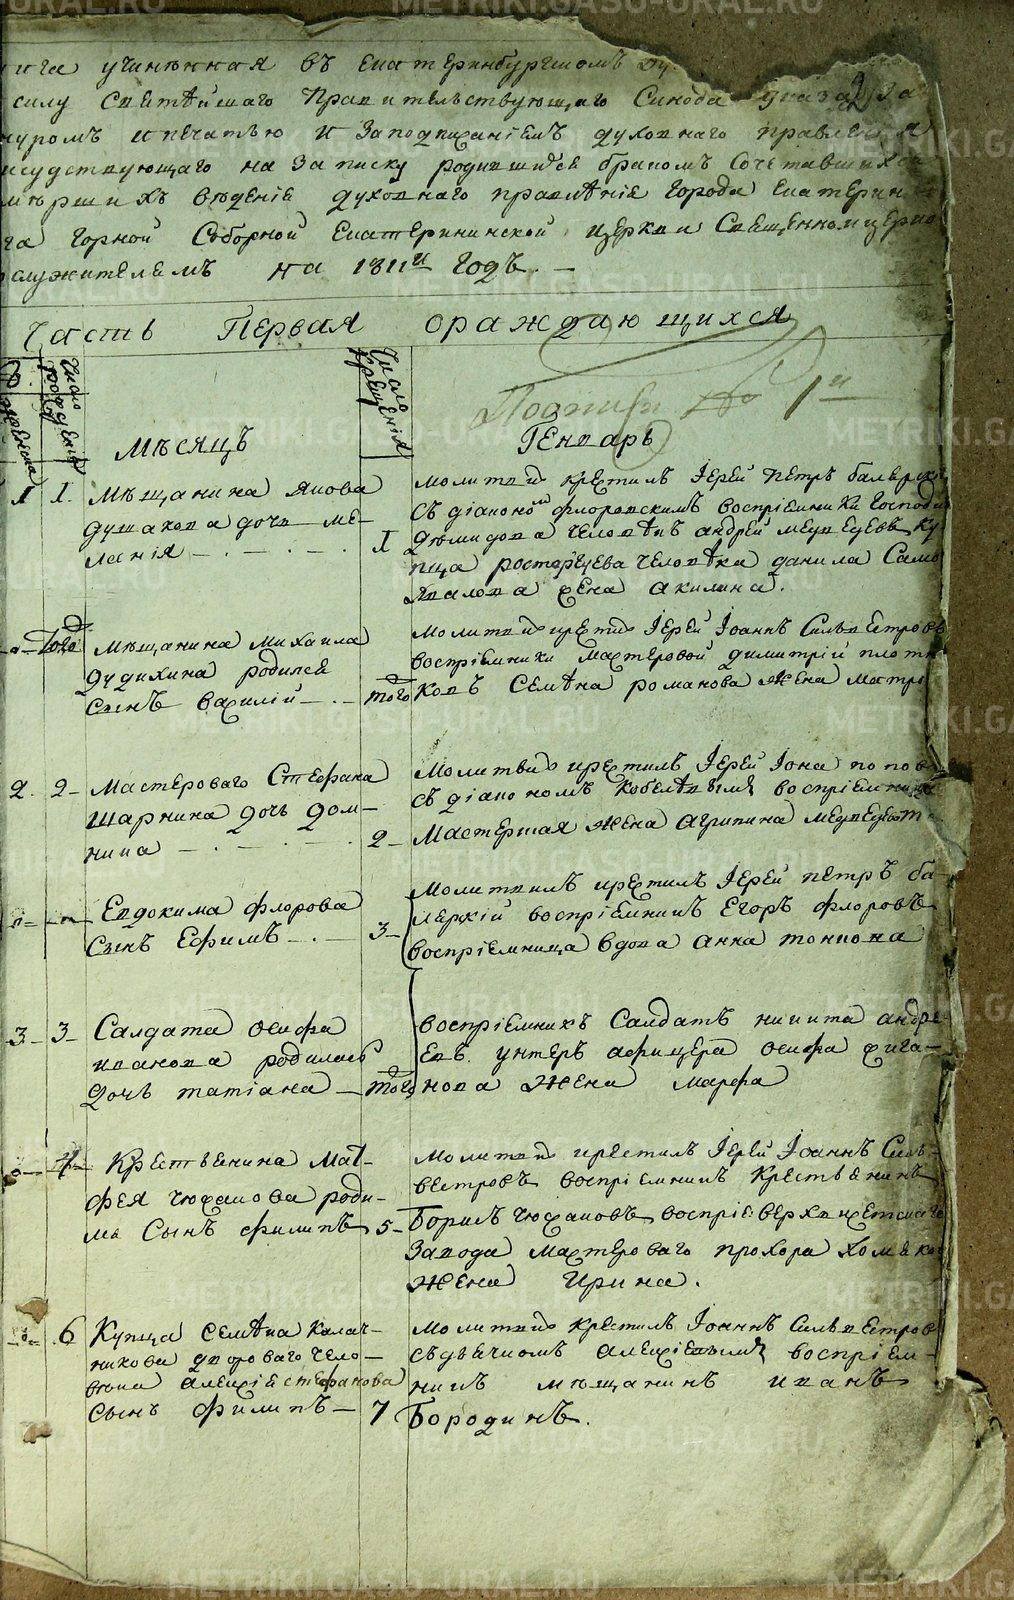 ига учиненная въ Екатеринбургскомъ Ду
силу Святѣйшаго Правительствующаго Синода указа за
нуромъ и печатью и заподписаніемъ духовнаго правленія
исудствующаго на записку родившихся бракомъ сочетавшихся
мершихъ вѣденіе духовнаго правленіе города Екатерин
га горной Соборной Екатерининской церкви Священноцерко
служителемъ на 1811й годъ. —
Часть Первая ораждающихся
Число рожденія
Число крещенія
Мѣсяцъ
Генварь
1 1. Мѣщанина Якова
душакова дочь ме-
ланія — . — . — .
1
молитвилъ крестилъ Іерей Петръ
съ діаконо флоровскимъ воспріемники господи
дѣмидова человѣкъ андрей медведевъ ку
пца росторгуева человѣка данила Само
жена акилина.
Того Мѣщанина Михаила
дудихина родился
сынъ василій — . —
того
молитв крести Іерей Іоаннъ Сильвестровъ
воспріемники мастеровой димитрій плотн
ковъ Семѣна романова жена матро
2. 2- Мастероваго Стефана
шаркина дочь дом-
ника — . — . — .
2-
Молитви крестилъ Іерей Іона попов
съ діакономъ Кобелѣвымъ воспріемница
мастерская жена агрипина
Евдокима флорова
сынъ Ефимъ — . —
3-
Молитвилъ крестилъ Іерей петръ ба-
воспріемникъ Егоръ флоровъ
воспріемница вдова анна
3- 3- Салдата осифа
иванова родилась
дочь татіана —
того
воспріемникъ Салдатъ никита андре-
евъ. унтеръ афицера осифа
нова жена марфа
4- Крестьенина Мат-
фея роди-
ся Сынъ филипъ
5-
молитви крестилъ Іерей Іоаннъ Силь-
вестровъ воспріемникъ Крестьенинъ
Борисъ воспріе: верхъ исетскаго
завода мастероваго прохора
жена Ирина.
6 Купца Семѣна Калаш-
никова двороваго чело-
века алексіе стефанова
сынъ филипъ —
7
молитви крестилъ Іоаннъ Сильвестров
съ дьячкомъ алексіевымъ воспріем-
никъ мѣщанинъ иванъ
Бородинъ.
METRIKI.GASO-URAL.RU